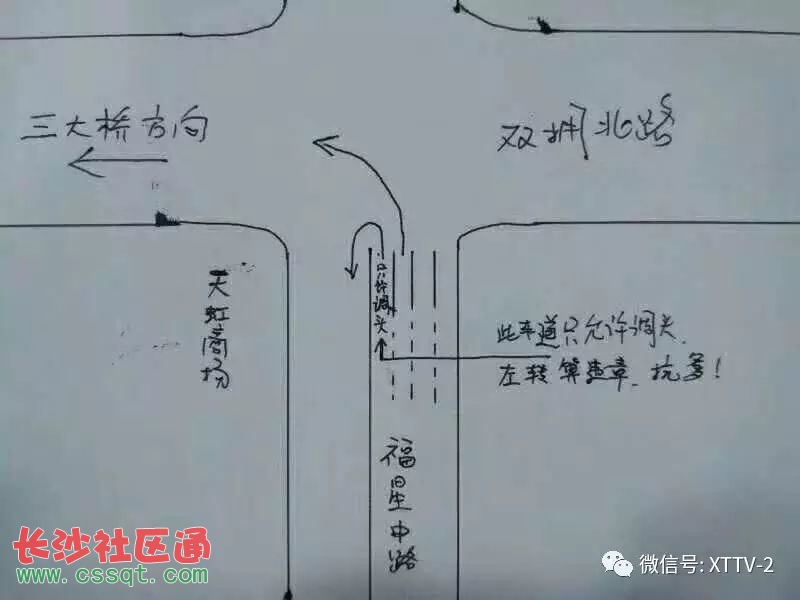 三大桥方向
双拥北路
只许调头
天虹商场
此车道只允许调头.
左转算违章. 坑爹!
福星中路
长沙社区通
www.cssqt.com
微信号: XTTV-2